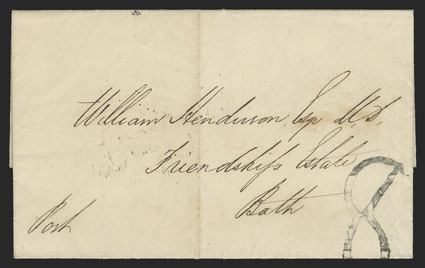 William Henderson, Esq M.D,
Friendship Estate
Bath
Post
8